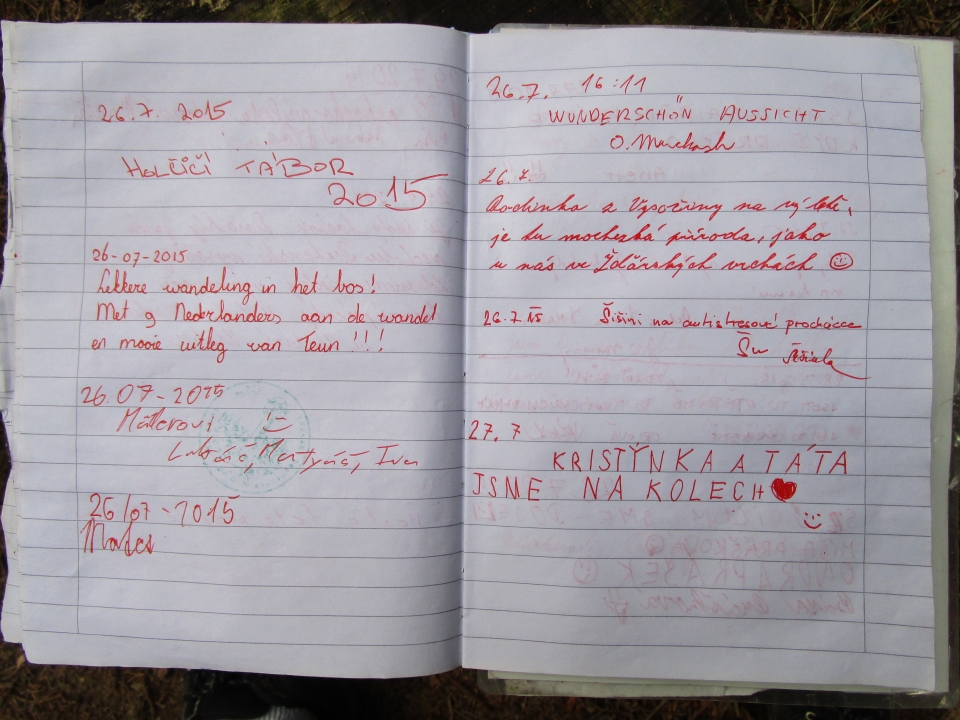 26.7. 2015
HOLČIČÍ TÁBOR
2015
26-07-2015
Lekkere wandeling in het bos!
Met 9 Nederlanders aan de wandel
en mooie uitleg van Teun !!!
26.07-2015
Lukáš, Martyáš, Iva
26/07-2015
26.7. 16:11
WUNDERSCHÖN AUSSICHT
O.
26.7.
Rodinka z Vysočiny na výletě,
je tu mochezká příroda, jako
u nás ve Žďárských vrchách ☺
26.7.15 Šišini na antistresové procházce
27.7
KRISTÝNKA A TÁTA
JSME NA KOLECH ♥